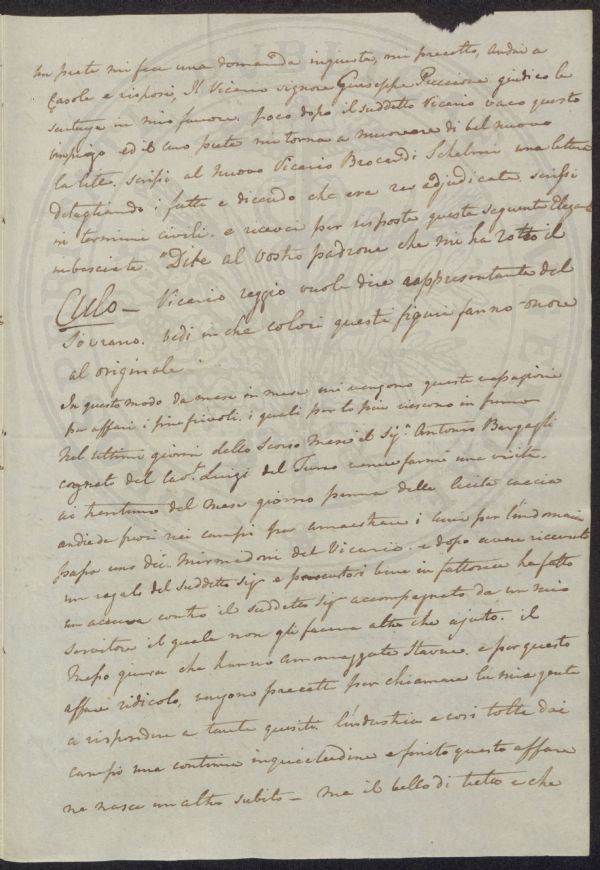 un prete mi fece una domanda ingiusta, mi precettò, andai a
Casole e risposi, Il Vicario signore Giuseppe Puccioni giudicò la
sentenza in mio favore. poco dopo il suddetto Vicario vacò questo
impiego ed il caro prete mi torna a muovere di bel nuovo
la lite. scrissi al Nuovo Vicario una lettera
detagliando i fatti e dicendo che era res adjudicata. scrissi
in termini civili. e ricevei per risposta questa seguente
imbasciata. "Dite al vostro padrone che mi ha rotto il
Culo — Vicario reggio vuole dire rappresentante del
Sovrano. vedi in che colori questi figuri fanno onore
al originale
In questo modo da mese in mese mi vengono queste vessazioni
per affari i più frivoli. i quali per lo più riescono in fumo
Nel ultimi giorni dello scorso mese il Sigr. Antonio Bargagli
cognato del Cavr. Luigi del Turco venne farmi una visita.
ai trentuno del mese giorno prima della lecita caccia
andiede fuori nei campi per ammaestrare i cani per l'indomani
passa uno dei Mirmidoni del Vicario. e dopo avere ricevuto
un regalo del suddetto sigr e bene in fattoria ha fatto
un accusa contro il suddetto sigr accompagnato da un mio
servitore il quale non gli faceva altro che ajuto. il
Messo giura che hanno ammazzato starne. e per questo
affare ridicolo, vengono precetti per chiamare la mia gente
a rispondere a tanti quesiti. l'industria e così tolta dai
campi una continua inquietudine e finito questo affare
ne nasce un altro subito — ma il bello di tutto e che